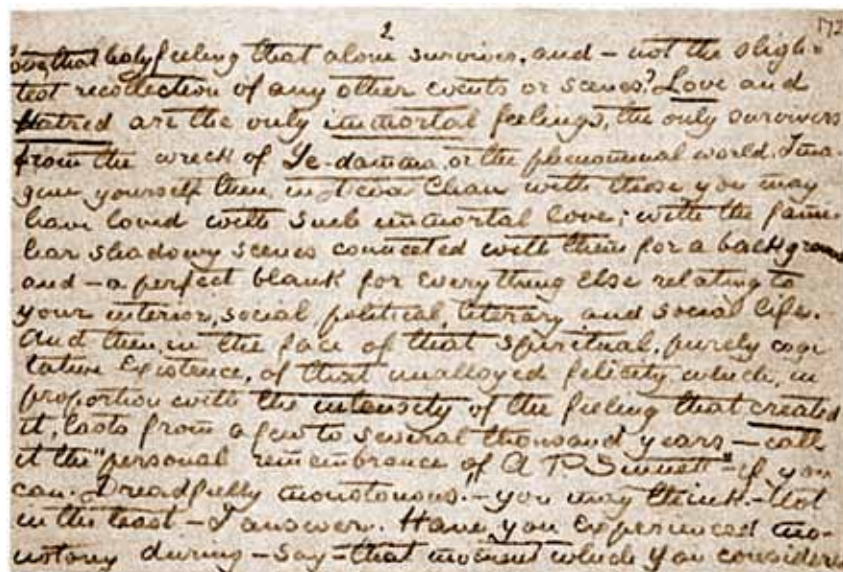 2 172
Love, that holy feeling that alone survives, and – not the sligh-
test recollection of any other events or scenes? Love and
Hatred are the only immortal feelings, the only survivors
from the wreck of Ye-damma, or the phenomenal world. Ima-
gine yourself then, in Deva-Chan with those you may
have loved with such immortal love; with the fami-
liar shadowy scenes connected with them for a background
and – a perfect blank for everything else relating to
your interior, social, political, literary and social life.
And then, in the face of that spiritual, purely cogi-
tative existence, of that unalloyed felicity which, in
proportion with the intensity of the feeling that created
it, lasts from a few to several thousand years, – call
it the "personal remembrance of A. P. Sinnett" – if you
can. Dreadfully monotonous! – you may think. – Not
in the least – I answer. Have you experienced mo-
notony during – say – that moment which you considered